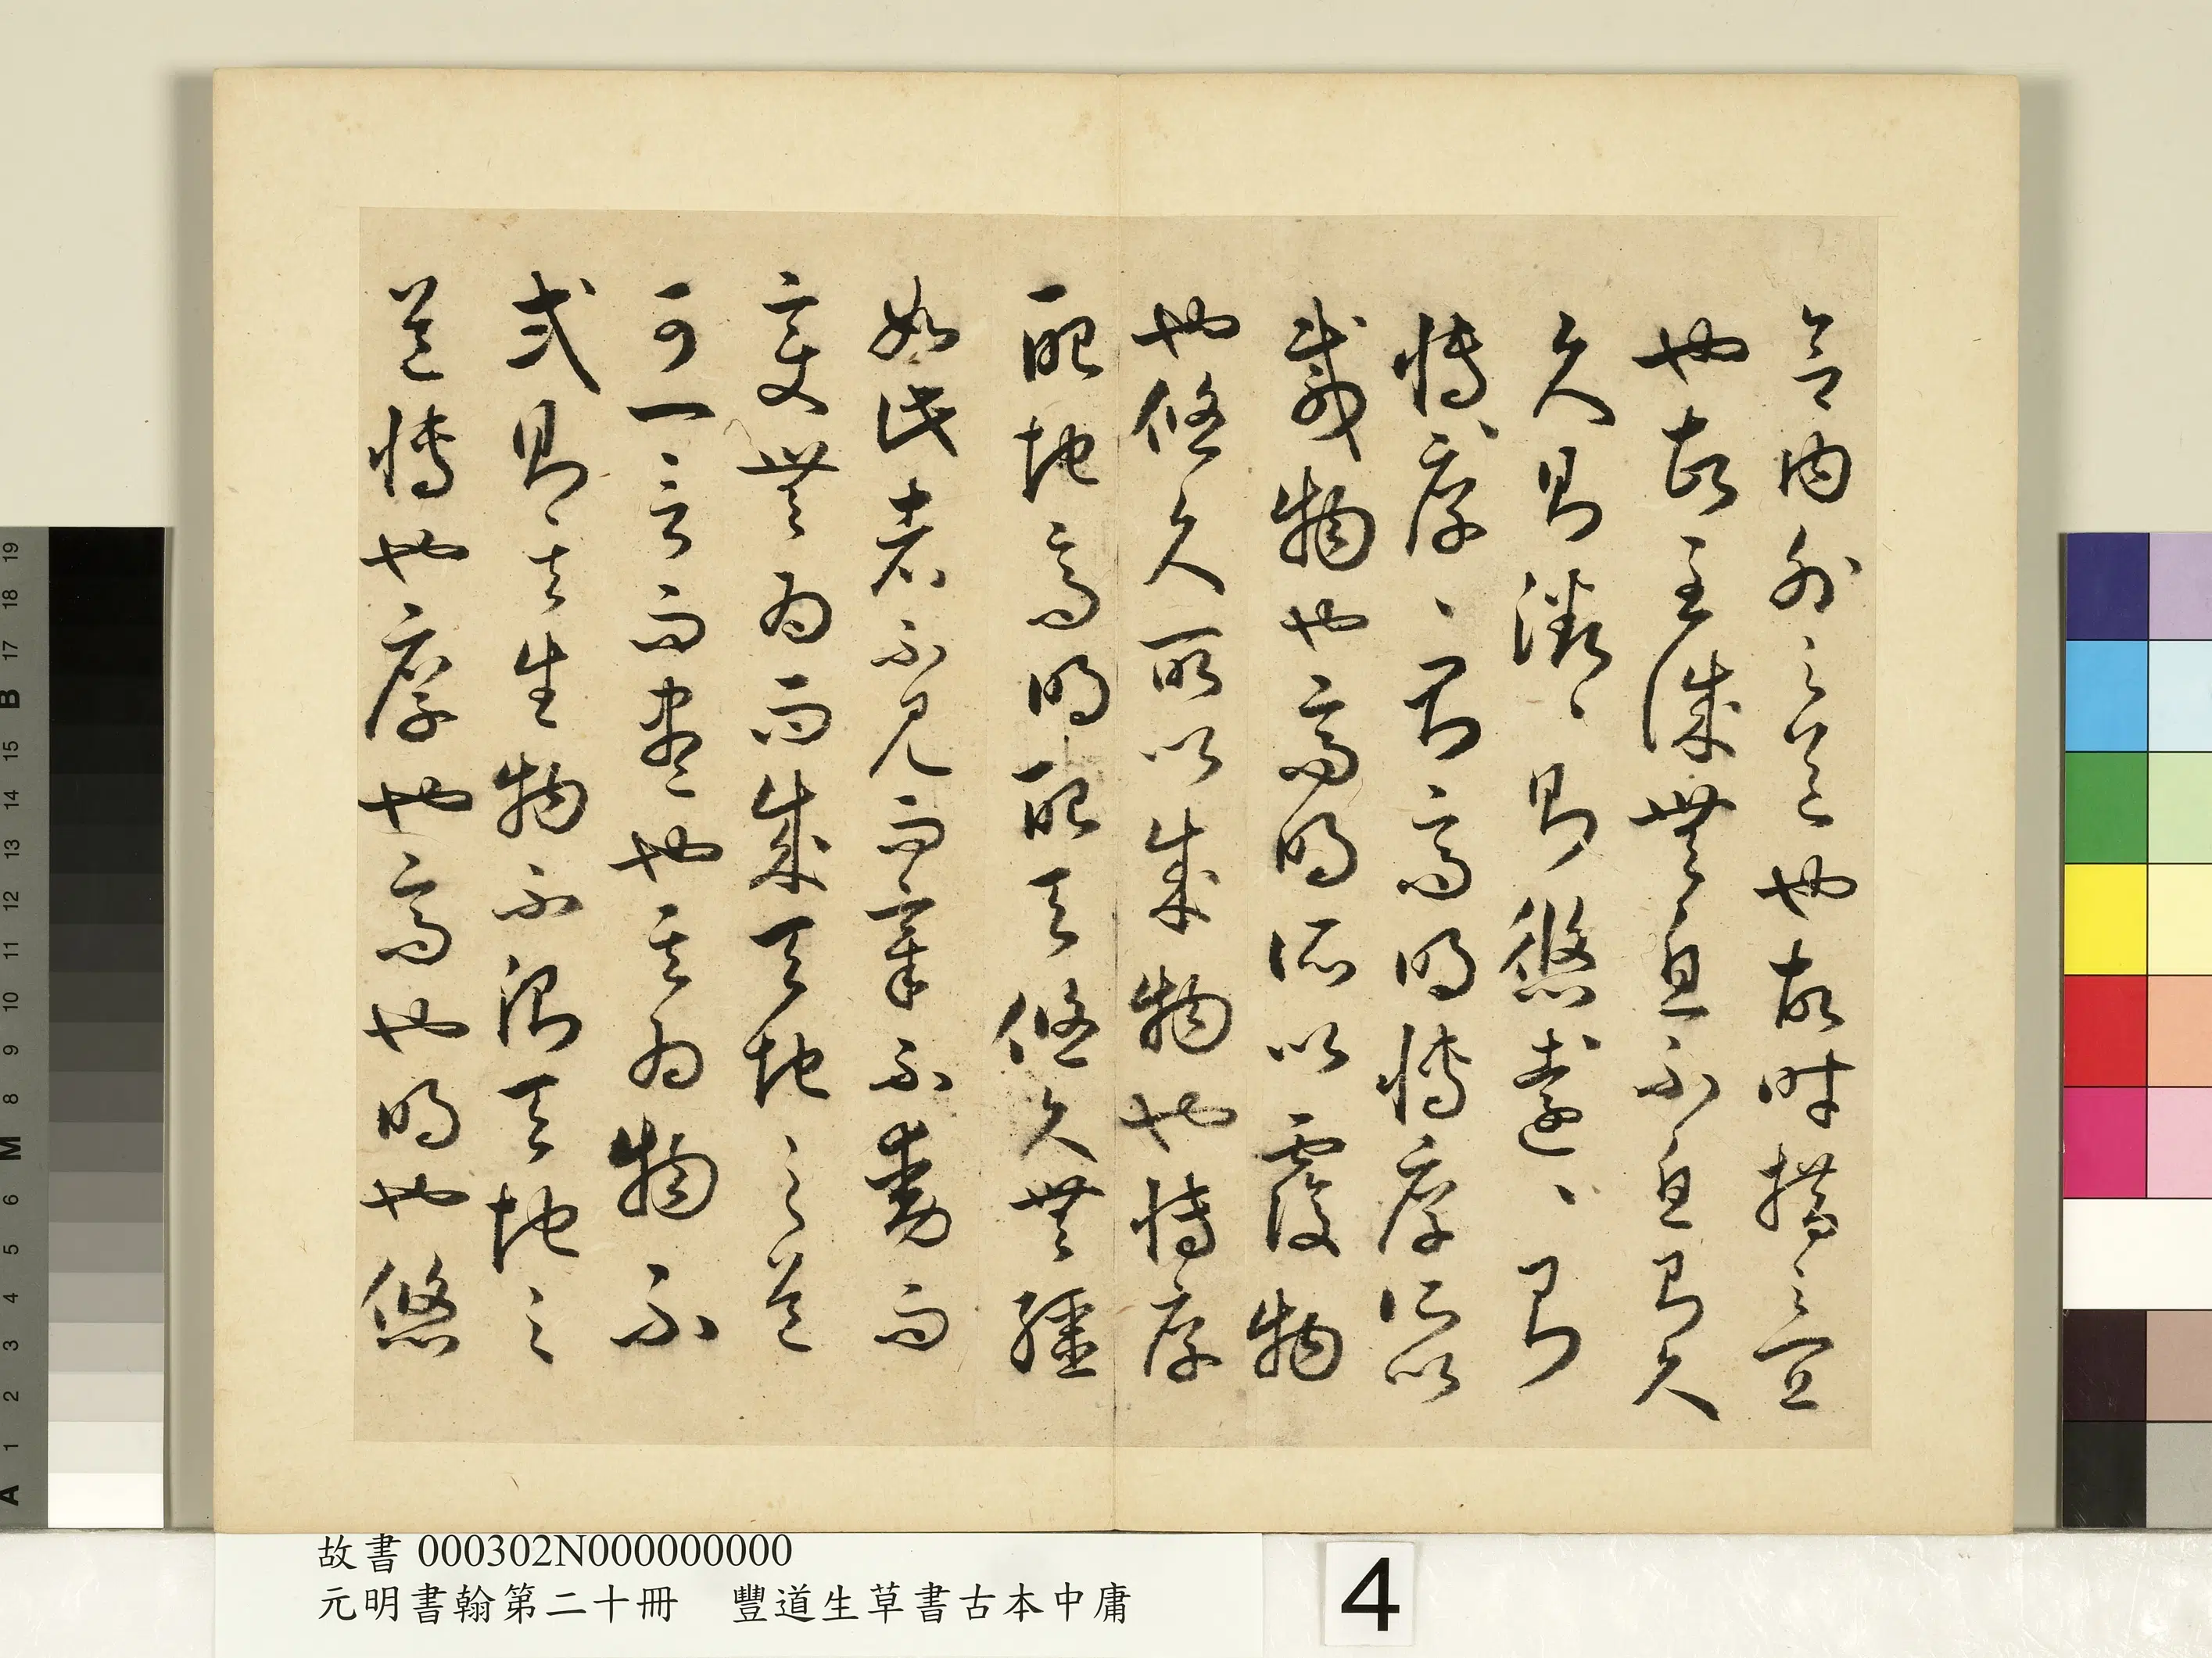 合内外之道也故時措之宜
也故至誠無息不息則久
久則徵、則悠遠、則
博、厚、則高明博厚所以
載物也高明所以覆物
也悠久所以成物也博厚
配地高明配天悠久無疆
如此者不見而章不動而
變無為而成天地之道
可一言而盡也其為物不
貳則其生物不測天地之
道博也厚也高也明也悠
故書 000302N000000000
元明書翰第二十冊 豐道生草書古本中庸
4
19
18
17
B
16
15
14
13
12
11
10
9
8
M
7
6
5
4
3
2
1
A